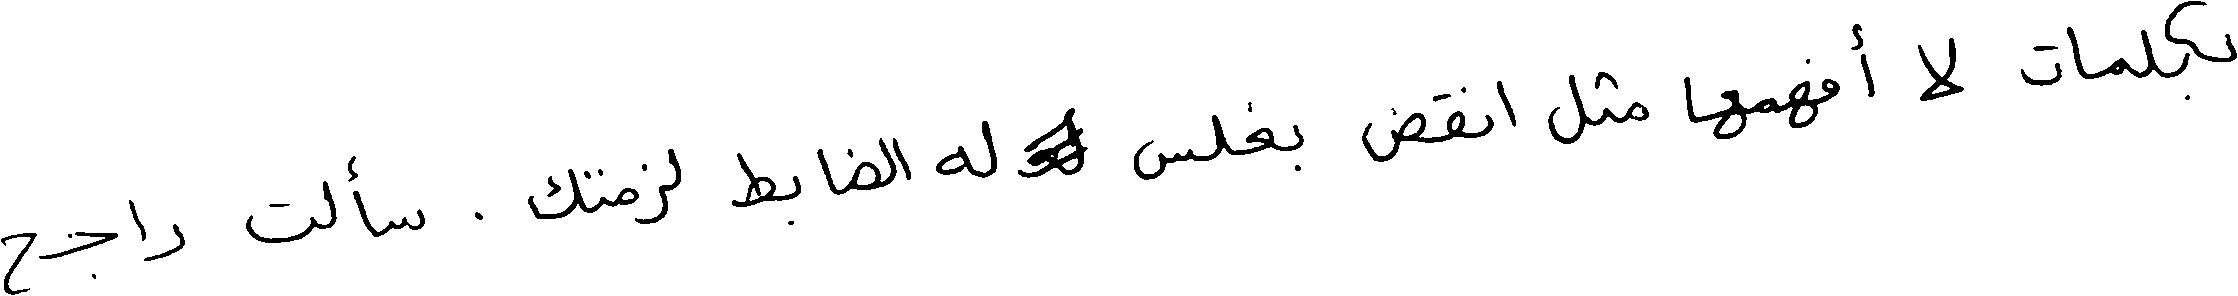 بكلمات لا أفهمها مثل انقض بغلس له الضابط لزمتك . سألت راجح